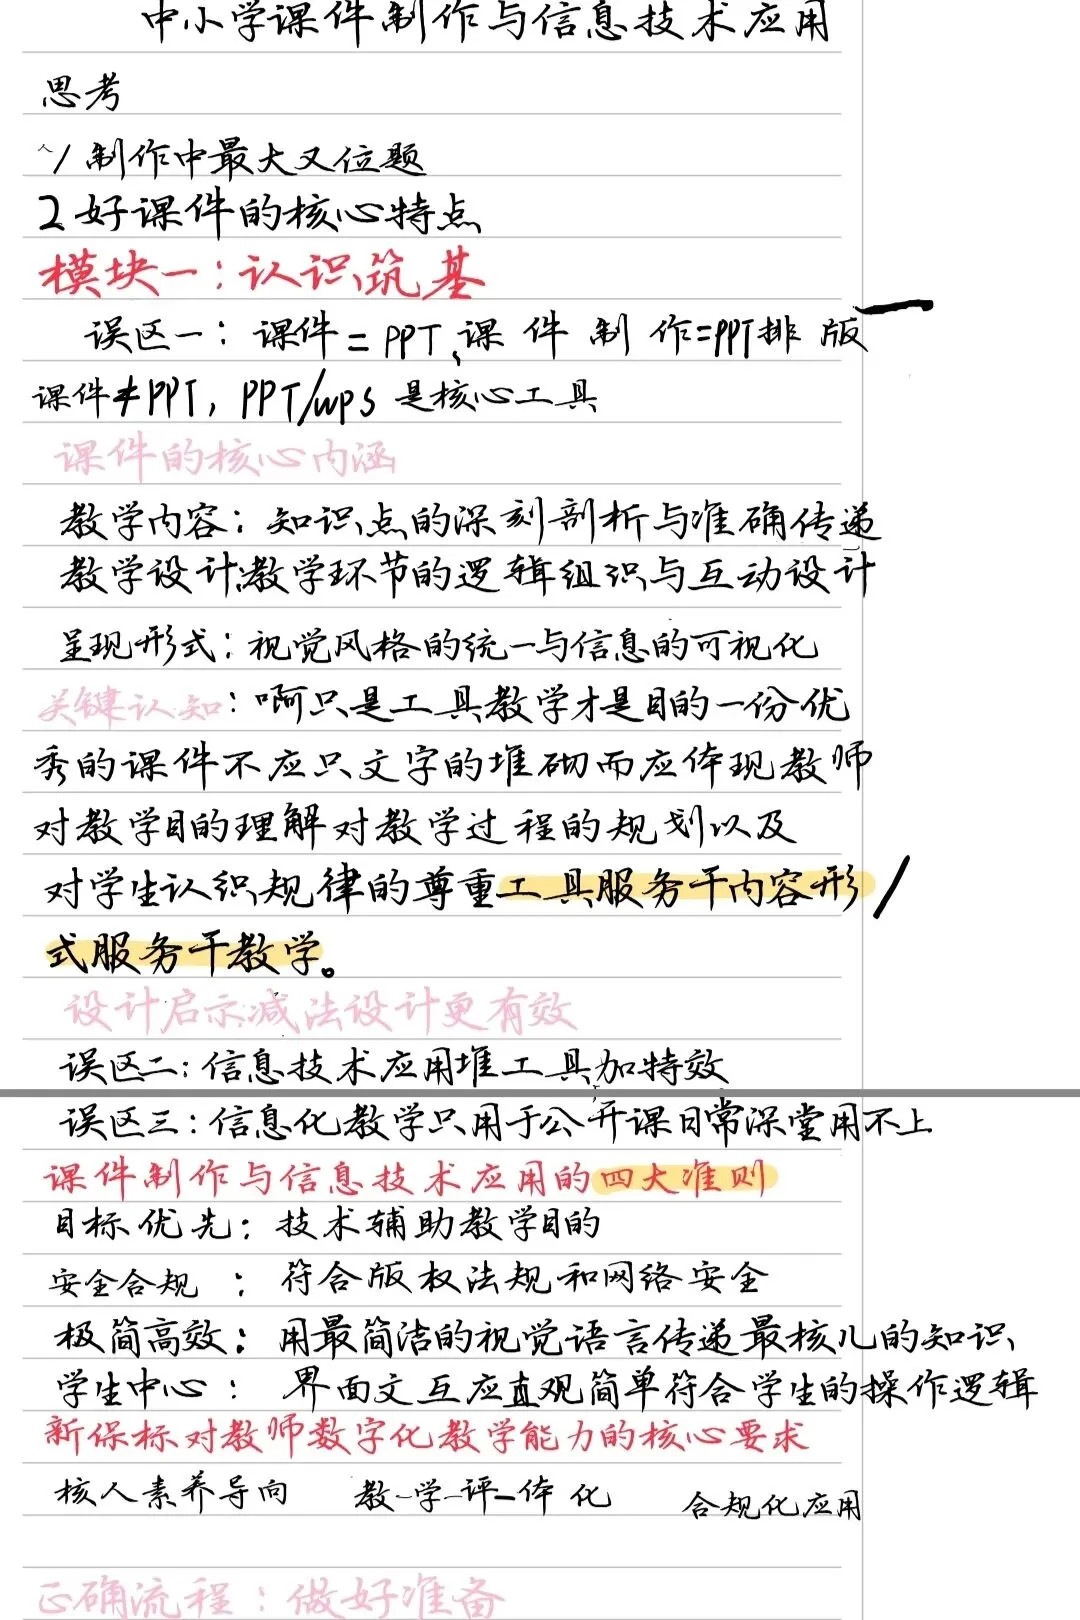 中小学课件制作与信息技术应用
思考
1 制作中最大又位题
2 好课件的核心特点
模块一：认识筑基
误区一：课件=PPT、课件制作=PPT排版
课件≠PPT，PPT/wps 是核心工具
课件的核心内涵
教学内容：知识点的深刻剖析与准确传递
教学设计：教学环节的逻辑组织与互动设计
呈现形式：视觉风格的统一与信息的可视化
关键认知：啊只是工具教学才是目的一份优
秀的课件不应只文字的堆砌而应体现教师
对教学目的理解对教学过程的规划以及
对学生认识规律的尊重工具服务干内容形
式服务干教学。
设计启示:减法设计更有效
误区二：信息技术应用堆工具加特效
误区三：信息化教学只用于公开课日常深堂用不上
课件制作与信息技术应用的四大准则
目标优先：技术辅助教学目的
安全合规：符合版权法规和网络安全
极简高效：用最简洁的视觉语言传递最核儿的知识、
学生中心：界面文互应直观简单符合学生的操作逻辑
新保标对教师数字化教学能力的核心要求
核人素养导向 教-学-评-体化 合规化应用
正确流程：做好准备